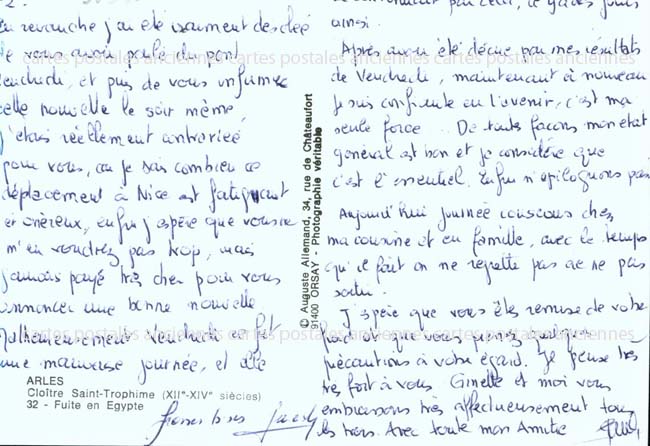 2.
En revanche j'ai été vraiment désolée
de vous avoir parlé du pont
Vendredi, et puis de vous infirmer
cette nouvelle le soir même,
j'étais réellement contrariée
pour vous, car je sais combien ce
déplacement à Nice est fatiguant
et onéreux, enfin j'espère que vous ne
m'en voudrez pas trop, mais
j'aurais payé très cher pour vous
annoncer une bonne nouvelle
Malheureusement Vendredi ce fut
une mauvaise journée, et elle
ARLES
Cloître Saint-Trophime (XIIe-XIVe siècles)
32 - Fuite en Egypte
© Auguste Allemand, 34, rue de Châteaufort
91400 ORSAY - Photographie véritable
ainsi.
Après avoir été déçue par mes résultats
de Vendredi, maintenant à nouveau
Je suis confiante en l'avenir, c'est ma
seule force. De toute façons mon état
général est bon et je considère que
c'est l'essentiel. Enfin n'épiloguons pas
Aujourd'hui journée couscous chez
ma cousine et en famille, avec le temps
qu'il fait on ne regrette pas de ne pas
sortir.
J'espère que vous êtes remise de votre
et que vous prenez quelques
précautions à votre égard. Je pense très
très fort à vous. Ginette et moi vous
embrassons très affectueusement tous
les trois. Avec toute mon Amitié
cartes postales anciennes cartes postales anciennes cartes postales anciennes
cartes postales anciennes cartes postales anciennes cartes postales anciennes